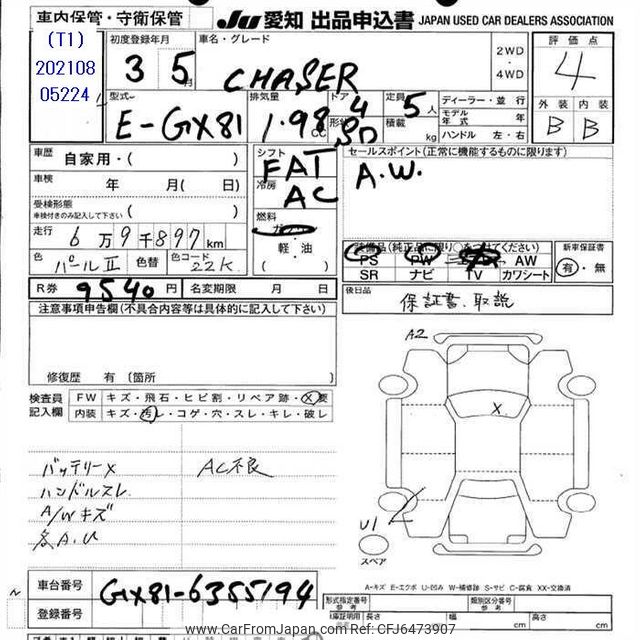 車内保管・守衛保管 JU 愛知 出品申込書 JAPAN USED CAR DEALERS ASSOCIATION
(T1)
202108
05224
初度登録年月 車名・グレード 評価点
3 5月 CHASER 2WD ・ 4WD 4
型式 排気量 ドア 定員 ディーラー・並行 外装 内装
E-GX81 1.98 cc 4 形状 SD 5人 積載 kg モデル年式 年 B B
ハンドル 左・右
車歴 自家用・( ) シフト セールスポイント(正常に機能するものに限ります)
FAT A.W.
車検 年 月( 日) 冷房 AC
受検形態 車検付きのみ記入して下さい ( ) 燃料
走行 6万9千897km ガソリン
軽・油
色 パールⅡ 色替 色コード 22K ( )
装備品(純正品に限り○をつけてください) 新車保証書
PS PW AW 有・無
SR ナビ TV カワシート
R券 9540円 名変期限 月 日 後日品
保証書、取説
注意事項申告欄(不具合内容等は具体的に記入して下さい)
修復歴 有 (箇所
検査員記入欄 FW キズ・飛石・ヒビ割・リペア跡・X要
内装 キズ・汚れ・コゲ・穴・スレ・キレ・破レ
A2
X
バッテリーX AC不良
ハンドルスレ
A/Wキズ
各A.U
U1
スペア
A-キズ E-エクボ U-凹み W-補修跡 S-サビ C-腐食 XX-交換済
車台番号 GX81-6355194
登録番号
形式指定番号 参考 類別区分番号 参考
長さ cm 幅 cm 高さ cm
www.CarFromJapan.com Ref: CFJ6473907